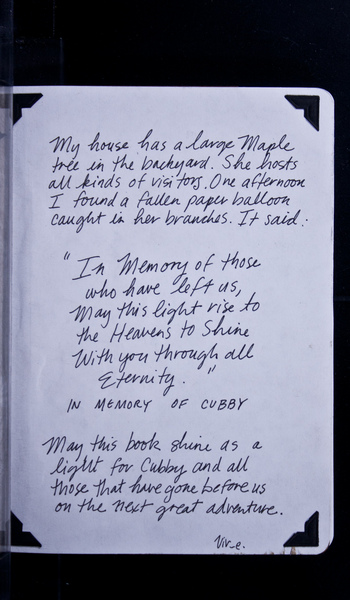 My house has a large Maple
tree in the backyard. She hosts
all kinds of visitors. One afternoon
I found a fallen paper balloon
caught in her branches. It said:
"In Memory of those
who have left us,
May this light rise to
the Heavens to Shine
With you through all
Eternity."
IN MEMORY OF CUBBY
May this book shine as a
light for Cubby and all
those that have gone before us
on the next great adventure.